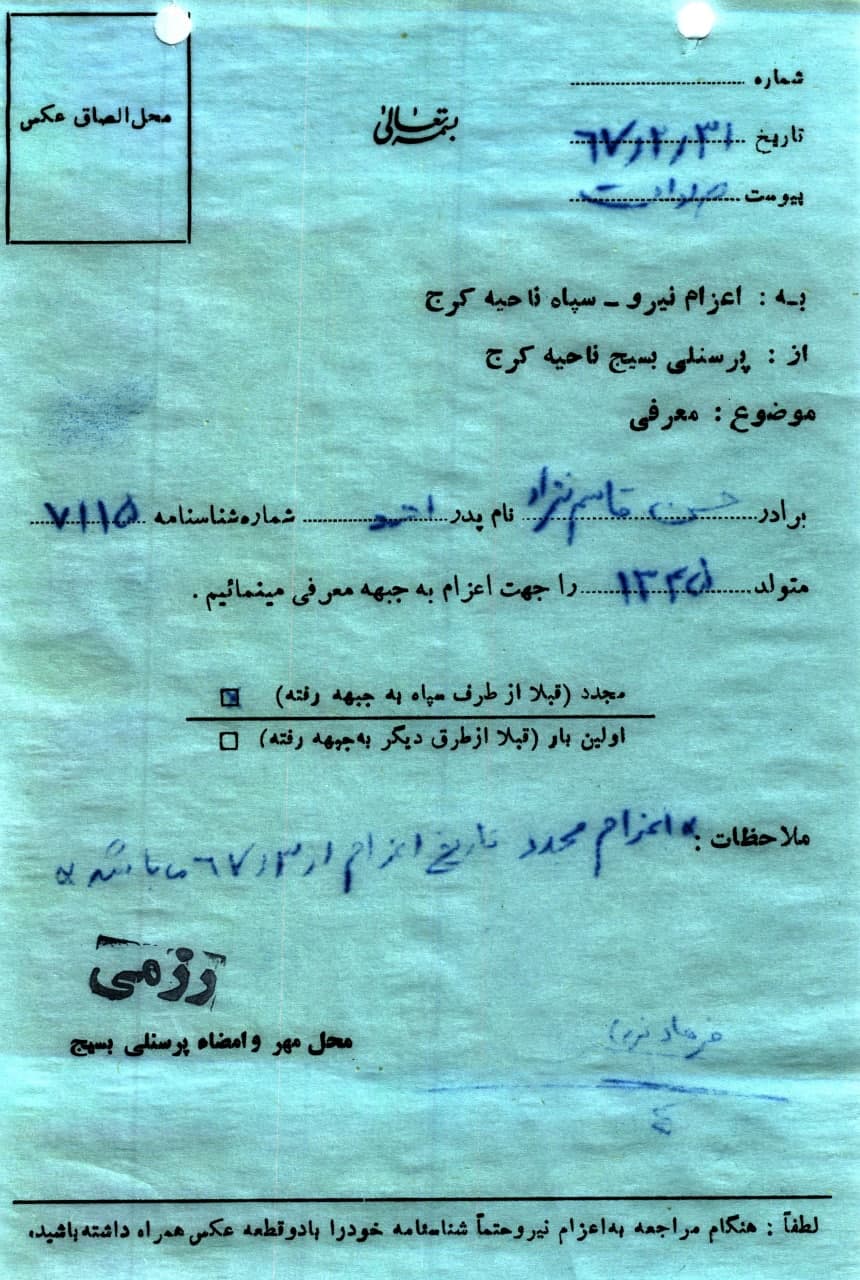 محل الصاق عکس
بسمه تعالی
شماره
تاریخ ۶۷/۲/۳۱
پیوست
بـه : اعزام نیرو ـ سپاه ناحیه کرج
از : پرسنلی بسیج ناحیه کرج
موضوع : معرفی
برادر حسن قاسم نژاد نام پدر شماره شناسنامه ۷۱۱۵
متولد ۱۳۴۵ را جهت اعزام به جبهه معرفی مینمائیم .
مجدد (قبلا از طرف سپاه به جبهه رفته)
اولین بار (قبلا ازطرق دیگر به‌جبهه رفته)
ملاحظات : اعزام مجدد تاریخ اعزام ۶۷/۳/۱
رزمی
محل مهر وامضاء پرسنلی بسیج
لطفاً : هنگام مراجعه به‌اعزام نیروحتماً شناسنامه خودرا بادوقطعه عکس همراه داشته باشید.